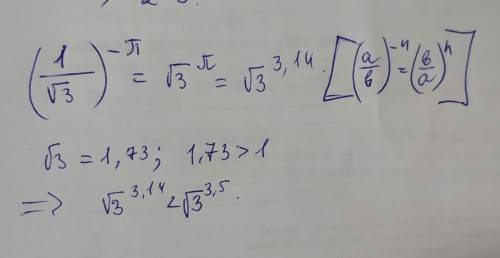 (1/√3)^-π = √3^π = √3^3,14. [(a/в)^-n = (в/a)^n]
√3 = 1,73; 1,73 > 1
=> √3^3,14 < √3^3,5.